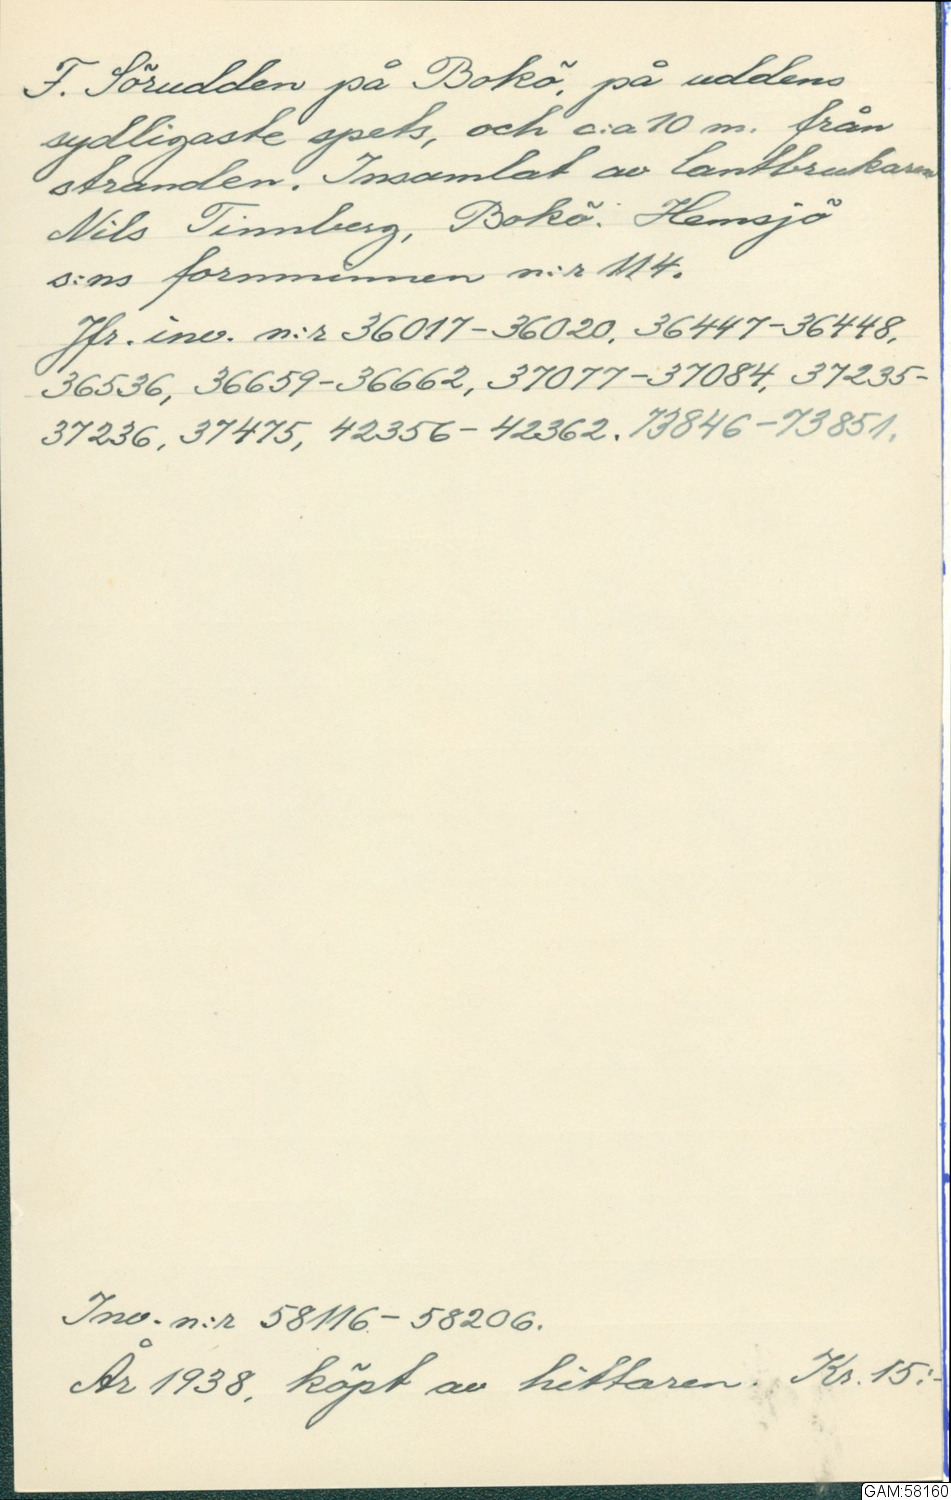 F. Sörudden på Bokö, på uddens
sydligaste spets, och c:a 10 m. från
stranden. Insamlat av lantbrukaren
Nils Tinnberg, Bokö. Hemsjö
s:ns fornminnen n:r 114.
Jfr. inv. n:r 36017-36020, 36447-36448,
36536, 36659-36662, 37077-37084, 37235-
37236, 37475, 42356-42362. 73846-73851.
Inv. n:r 58116-58206.
År 1938, köpt av hittaren. Kr. 15:-
GAM:58160